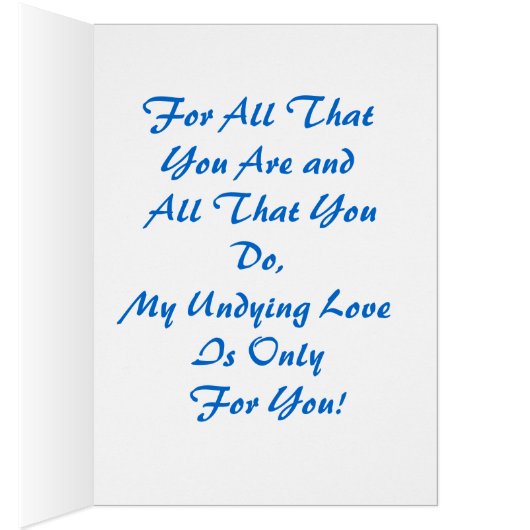 For All That
You Are and
All That You
Do,
My Undying Love
Is Only
For You!